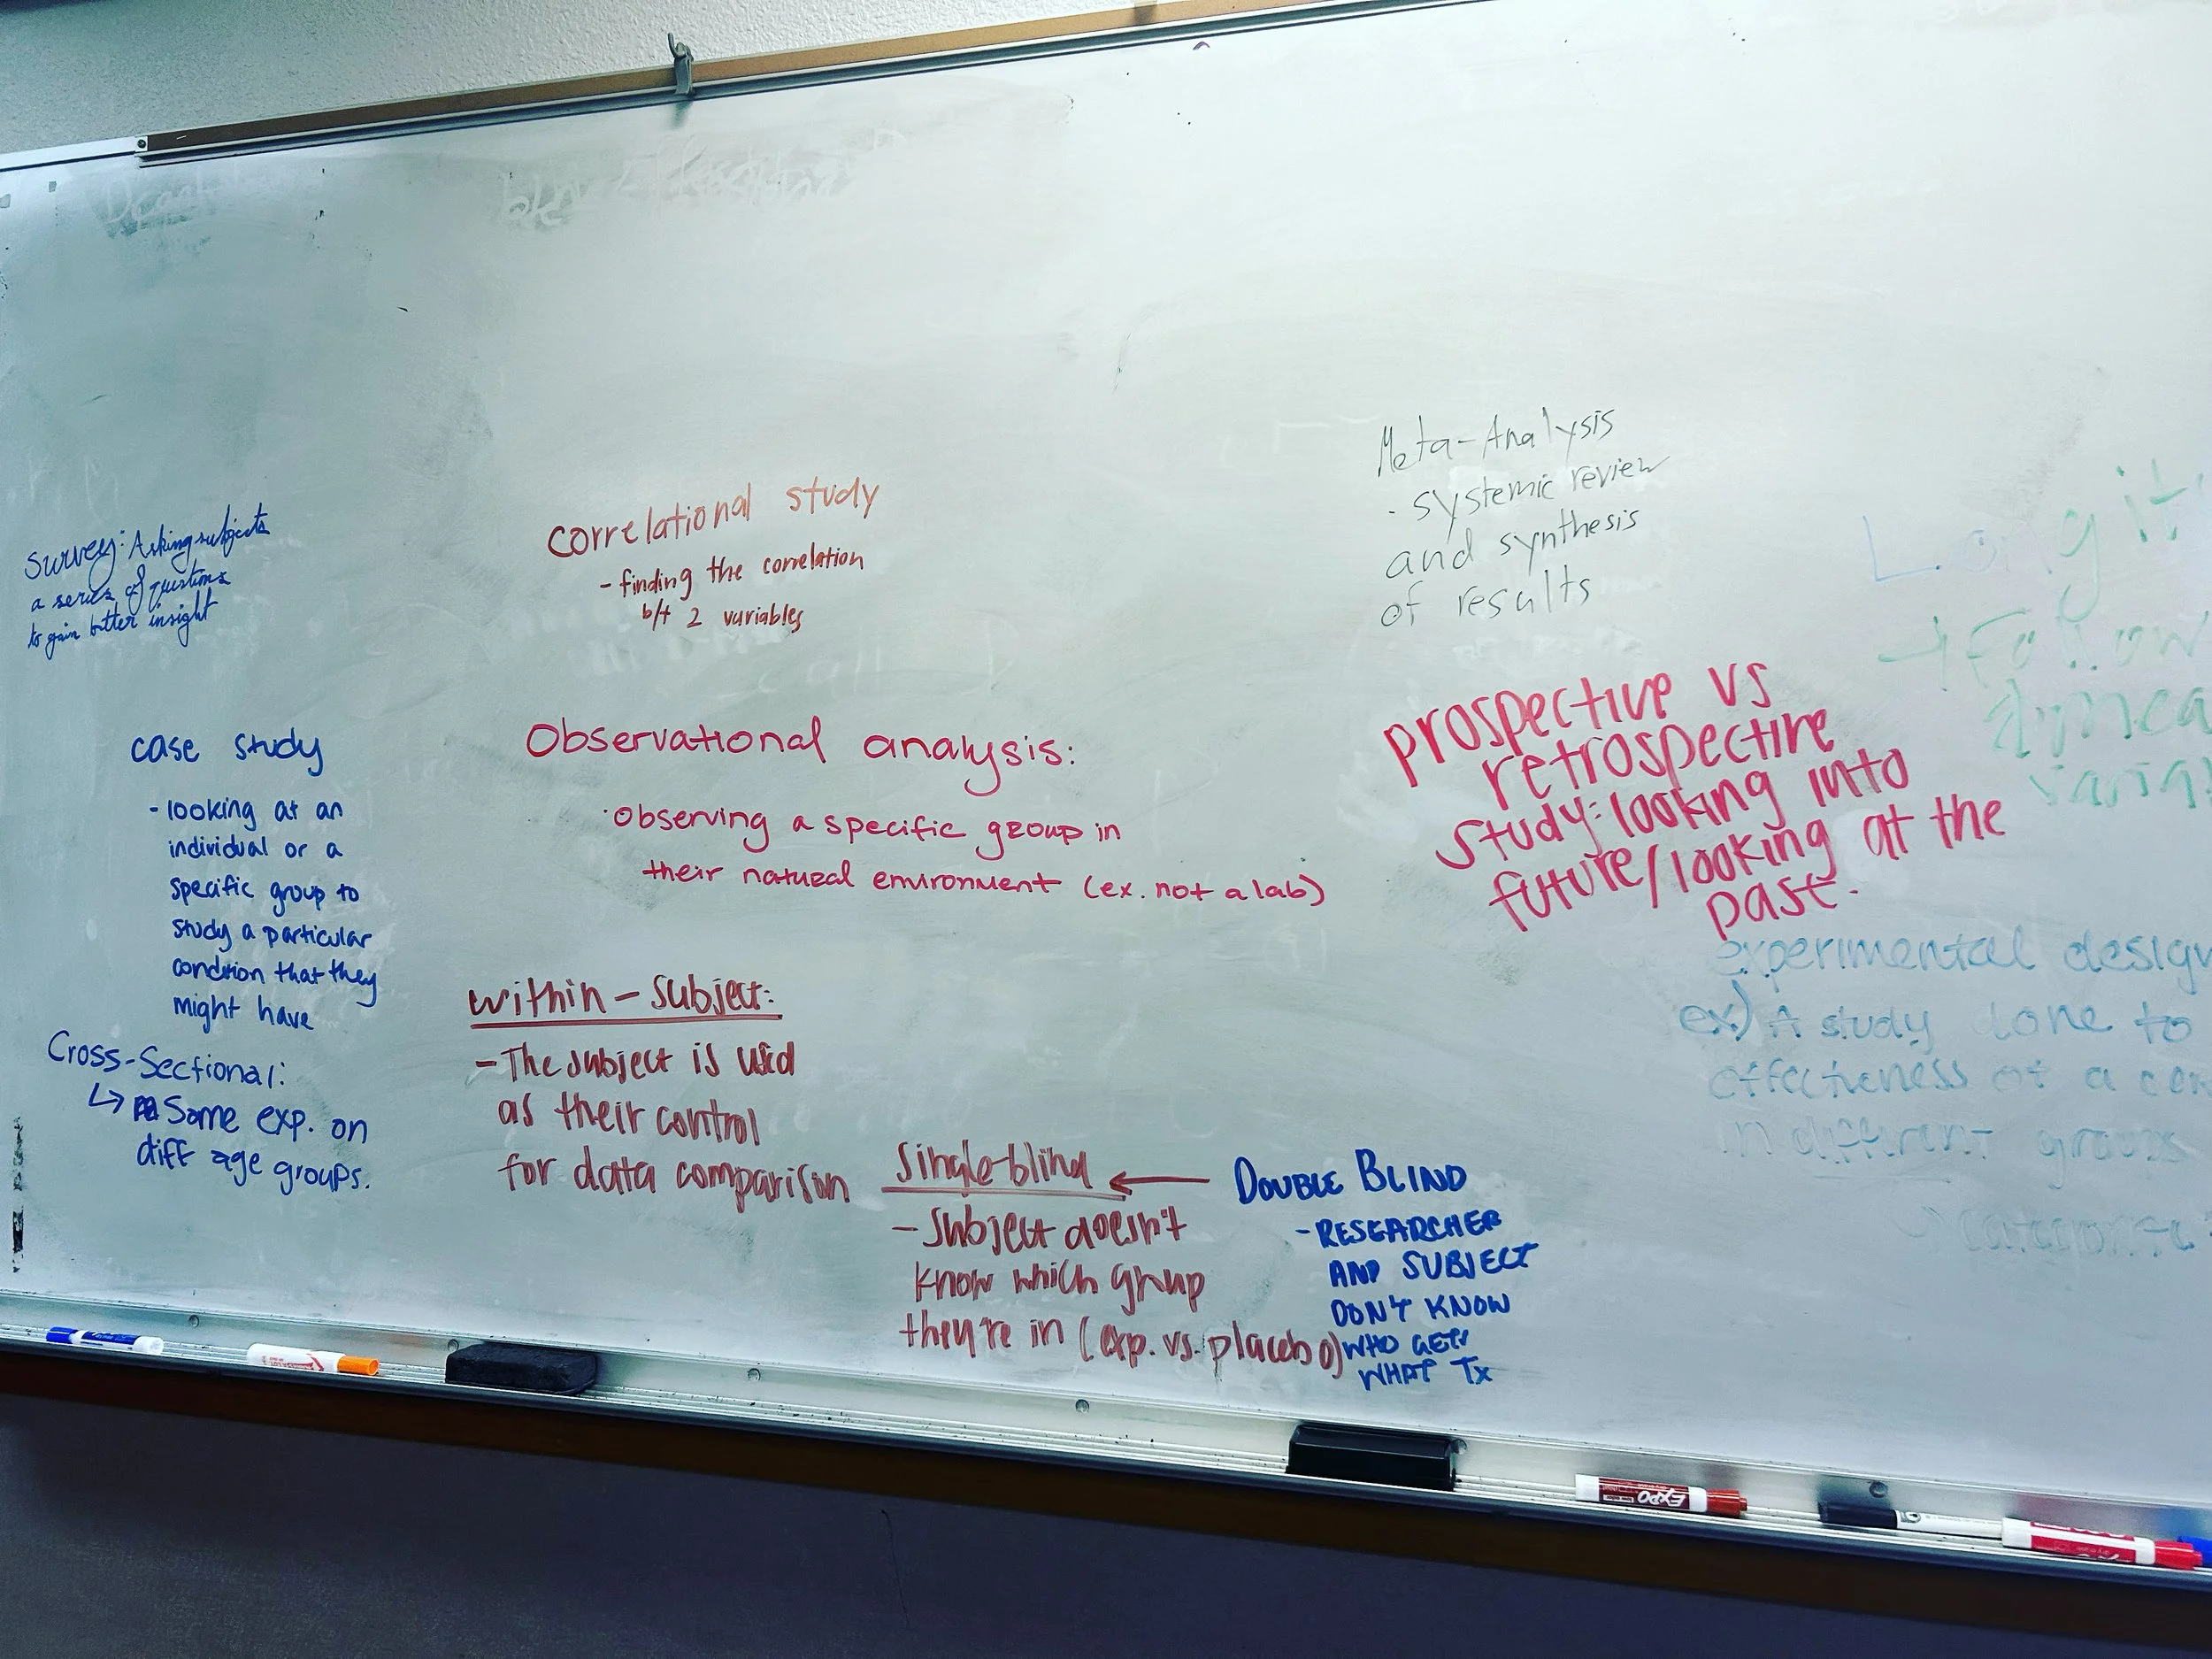 Survey: Asking subjects
a series of questions
to gain better insight
case study
- looking at an
individual or a
specific group to
study a particular
condition that they
might have
Cross-Sectional:
↳ Same exp. on
diff age groups.
correlational study
- finding the correlation
b/t 2 variables
Observational analysis:
· Observing a specific group in
their natural environment (ex. not a lab)
within-subject:
- The subject is used
as their control
for data comparison
Single-blind ←
- Subject doesn't
know which group
they're in (exp. vs. placebo)
DOUBLE BLIND
- RESEARCHER
AND SUBJECT
DON'T KNOW
WHO GETS
WHAT Tx
Meta-Analysis
· systemic review
and synthesis
of results
prospective vs
retrospective
study: looking into
future/looking at the
past.
Longit
→ Follow
experimental design
ex) A study done to
effectiveness of a
in different groups
EXPO